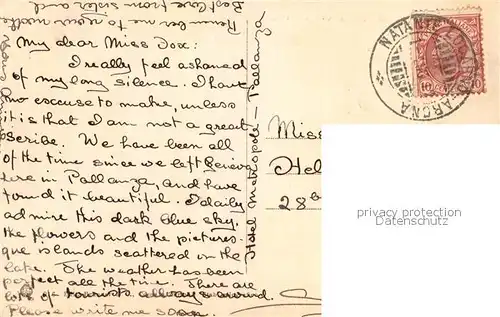 My dear Miss Dox:
I really feel ashamed
of my long silence. I have
no excuse to make, unless
it is that I am not a great
scribe. We have been all
of the time since we left Geneva
here in Pallanza, and have
found it beautiful. I daily
admire this dark blue sky,
the flowers and the pictures-
que islands scattered on the
lake. The weather has been
perfect all the time. There are
lots of tourists always around.
Please write me soon.
Remember me to your mother
Best love from sister and
Hotel Metropole - Pallanza
NATANTE LOCARNO ARONA
10
Miss
Hel
28b
privacy protection